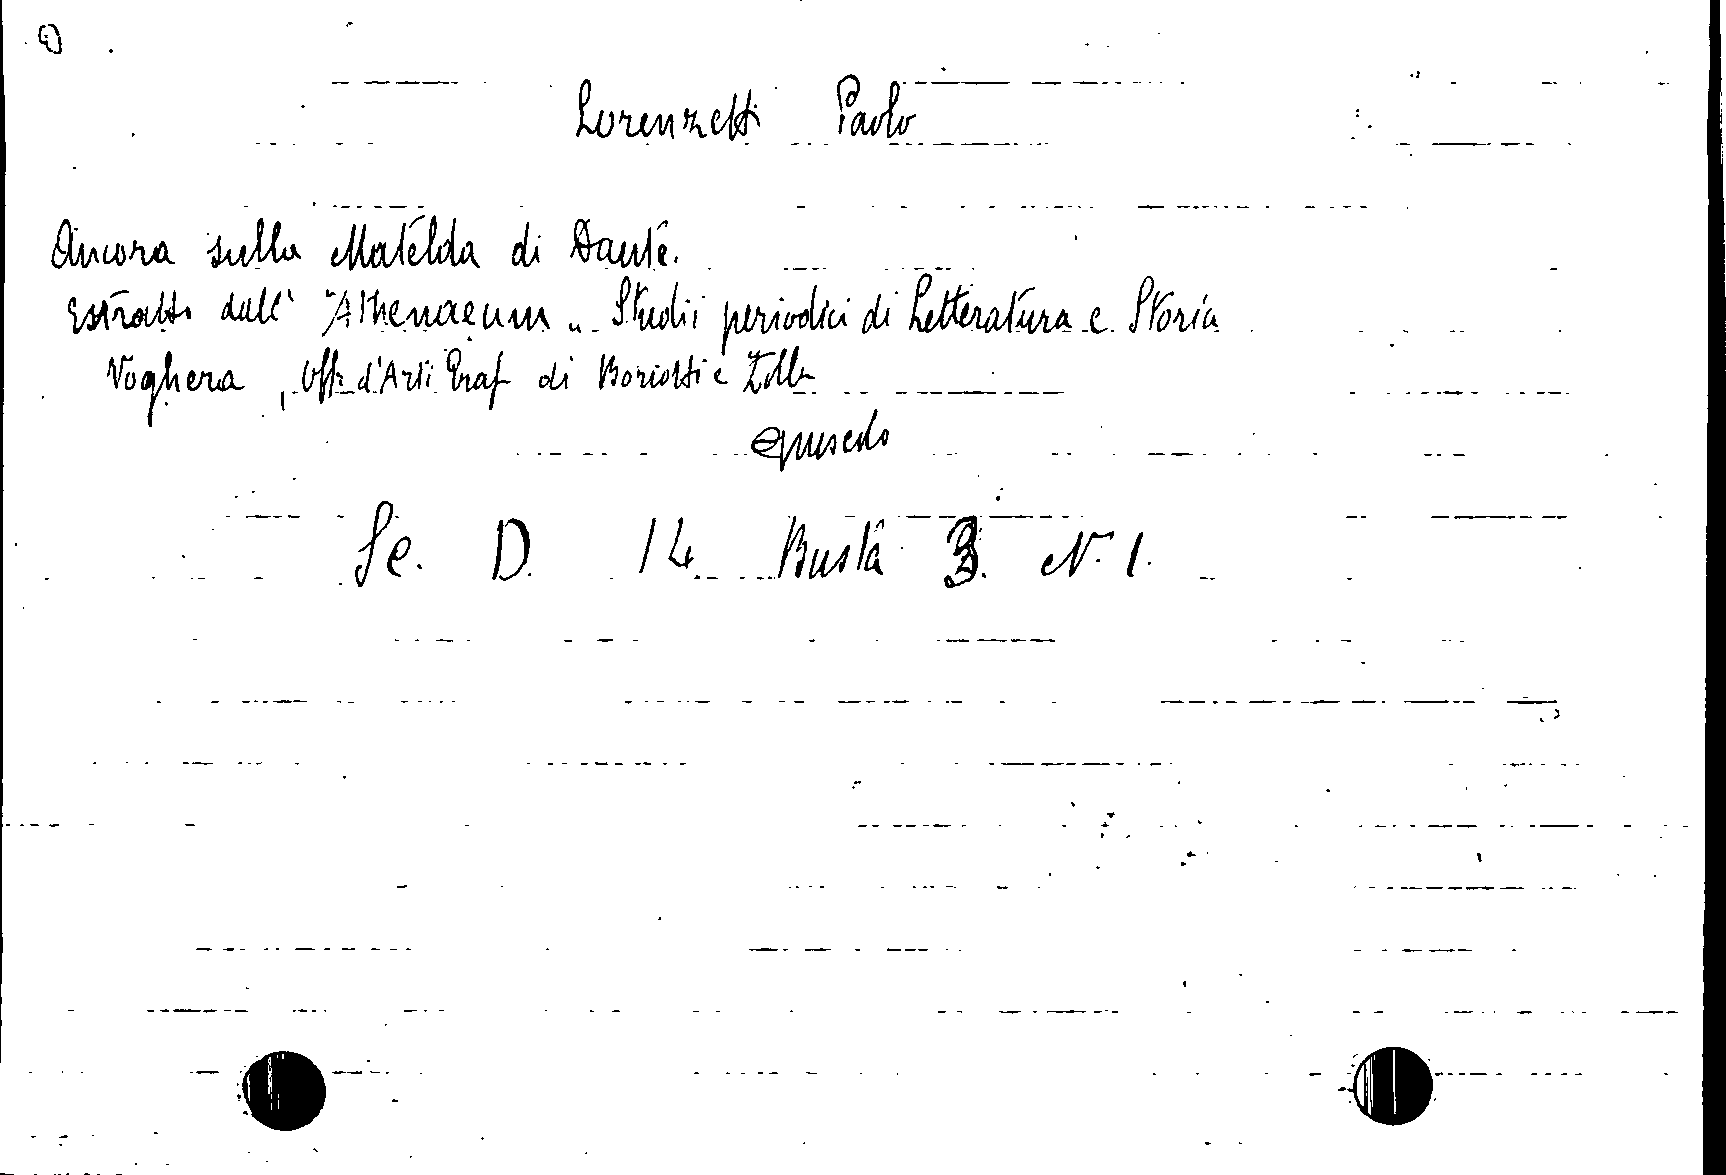 Lorenzetti Paolo
Ancora sulla Matelda di Dante.
Estratto dall' "Athenaeum" Studii periodici di Letteratura e Storia
Voghera, Uff. d'Arti Graf di Boriotti e Zolla
opuscolo
Sc. D. 14 Busta 3. N. 1.